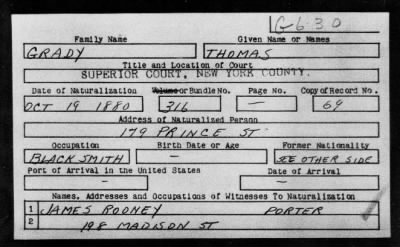 G-630
Family Name Given Name or Names
GRADY THOMAS
Title and Location of Court
SUPERIOR COURT, NEW YORK COUNTY.
Date of Naturalization Volume or Bundle No. Page No. Copy of Record No.
OCT 19 1880 316 — 69
Address of Naturalized Person
179 PRINCE ST
Occupation Birth Date or Age Former Nationality
BLACKSMITH — SEE OTHER SIDE
Port of Arrival in the United States Date of Arrival
— —
Names, Addresses and Occupations of Witnesses To Naturalization
1 JAMES ROONEY PORTER
2 198 MADISON ST